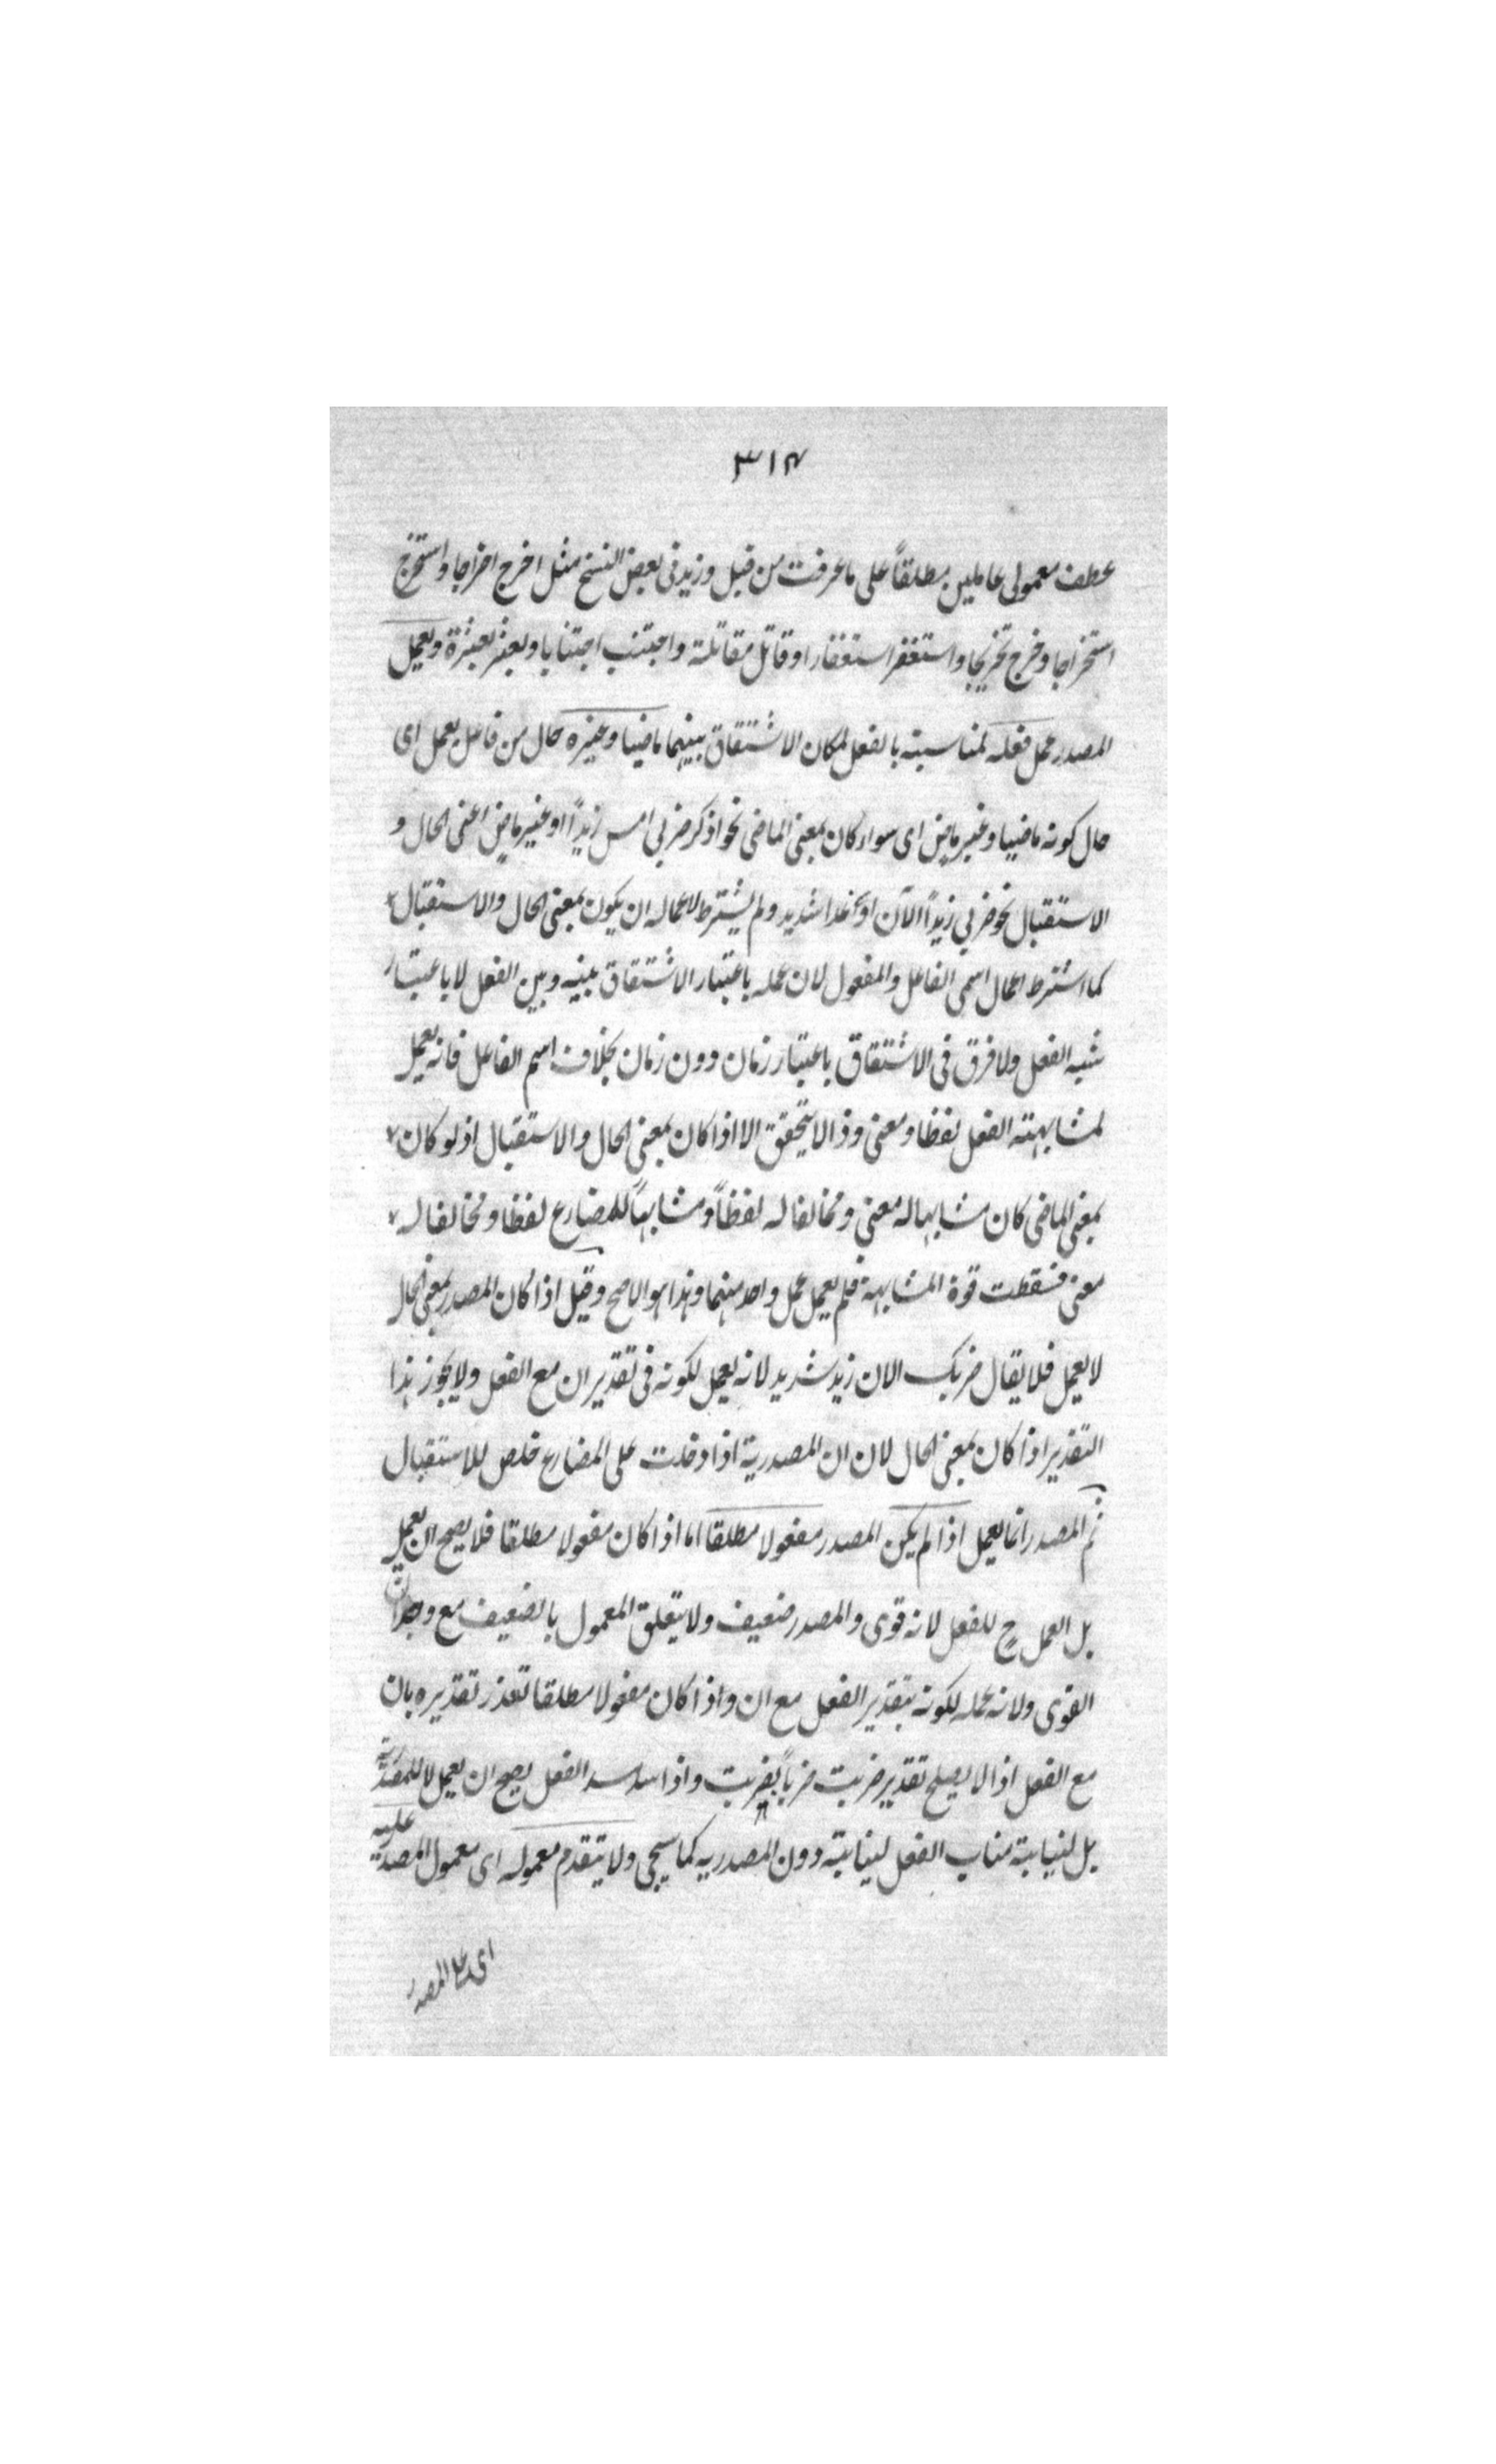 ٣١٧
عطف معمولى عاملين مطلقاً على ما عرفت من قبل وزيد فى بعض النسخ مثل اخرج اخراجا واستخرج
استخراجا وخرج تخريجا واستغفر استغفارا وقاتل مقاتلة واجتنب اجتنابا وبعثر بعثرة ويعمل
المصدر عمل فعله لمناسبته بالفعل لمكان الاشتقاق بينهما ماضيا وغيره حال من فاعل يعمل اى
حال كونه ماضيا وغير ماض اى سواء كان بمعنى الماضى نحو اذكر ضربى امس زيداً او غير ماضٍ اعنى الحال و
الاستقبال نحو ضربى زيداً الآن او غدا شديد ولم يشترط لاعماله ان يكون بمعنى الحال والاستقبال
كما اشترط اعمال اسمى الفاعل والمفعول لان عمله باعتبار الاشتقاق بينه وبين الفعل لا باعتبار
شبه الفعل ولا فرق فى الاشتقاق باعتبار زمان دون زمان بخلاف اسم الفاعل فانه يعمل
لمشابهته الفعل لفظا ومعنى وذا لا يتحقق الا اذا كان بمعنى الحال والاستقبال اذ لو كان
بمعنى الماضى كان مشابها له معنى ومخالفا له لفظاً ومشابهاً للمضارع لفظا ومخالفا له
معنى فسقطت قوة المشابهة فلم يعمل عمل واحد منهما وهذا هو الاصح وقيل اذا كان المصدر بمعنى الحال
لا يعمل فلا يقال ضربك الان زيد شديد لانه يعمل لكونه فى تقدير ان مع الفعل ولا يجوز هذا
التقدير اذا كان بمعنى الحال لان ان المصدرية اذا دخلت على المضارع خلص للاستقبال
ثم المصدر انما يعمل اذا لم يكن المصدر مفعولا مطلقا اما اذا كان مفعولا مطلقا فلا يصح ان يعمل
بل العمل ح للفعل لانه قوى والمصدر ضعيف ولا يتعلق المعمول بالضعيف مع وجدان
القوى ولانه عمله لكونه بتقدير الفعل مع ان واذا كان مفعولا مطلقا تعذر تقديره بان
مع الفعل اذ لا يصلح تقدير ضربت ضرباً بضربت واذا سد مسد الفعل يصح ان يعمل لا للمصدرية
بل لنيابته مناب الفعل لنيابته دون المصدريه كما سيجى ولا يتقدم معموله اى معمول المصدر عليه
اى على المصدر